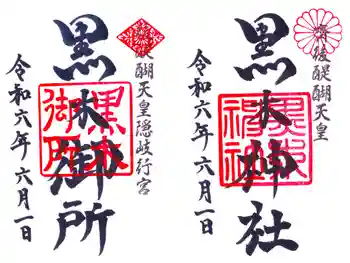 醍醐天皇
黒木神社
令和六年六月一日
醍醐天皇隠岐行宮
黒木御所
令和六年六月一日